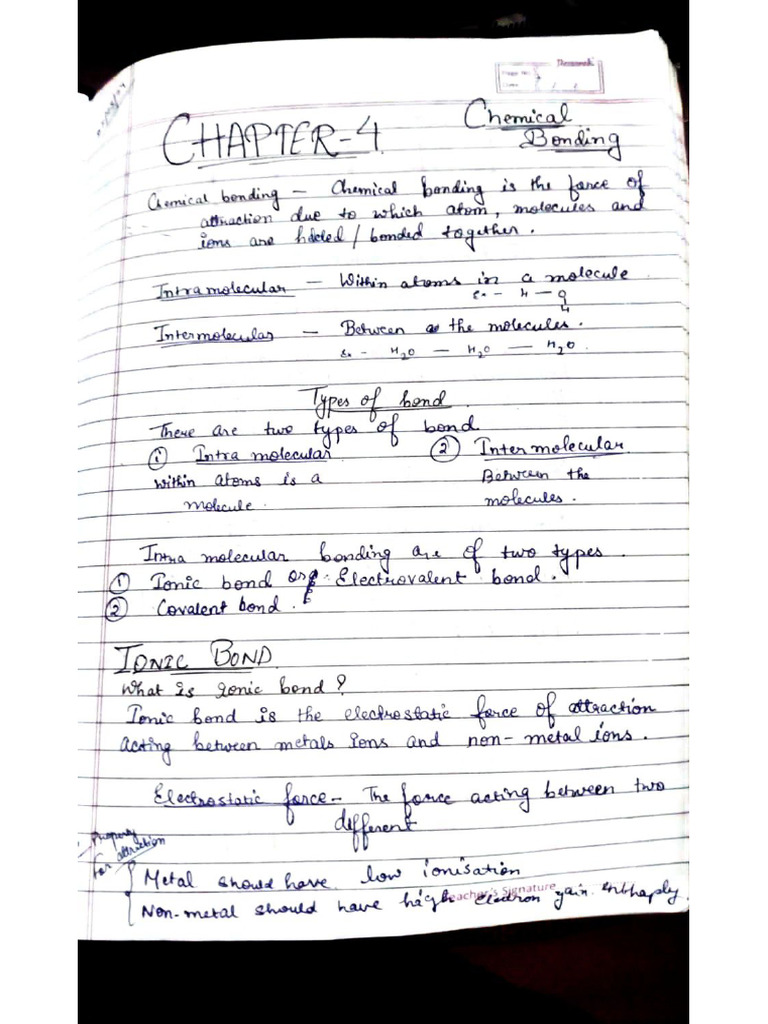 CHAPTER-4
Chemical
Bonding
Chemical bonding - Chemical bonding is the force of
attraction due to which atom, molecules and
ions are / bonded together.
Intramolecular - Within atoms in a molecule
Ex - H - O
H
Intermolecular - Between the molecules.
Ex - H₂O - H₂O - H₂O
Types of bond
There are two types of bond
① Intra molecular
② Inter molecular
within atoms is a
Between the
molecule.
molecules.
Intra molecular bonding are of two types.
① Ionic bond or Electrovalent bond.
② Covalent bond.
IONIC BOND
What is ionic bond?
Ionic bond is the electrostatic force of attraction
acting between metals ions and non-metal ions.
Electrostatic force - The force acting between two
different
Property
for attraction
Metal should have low ionisation
Teacher's Signature
Non-metal should have electron gain